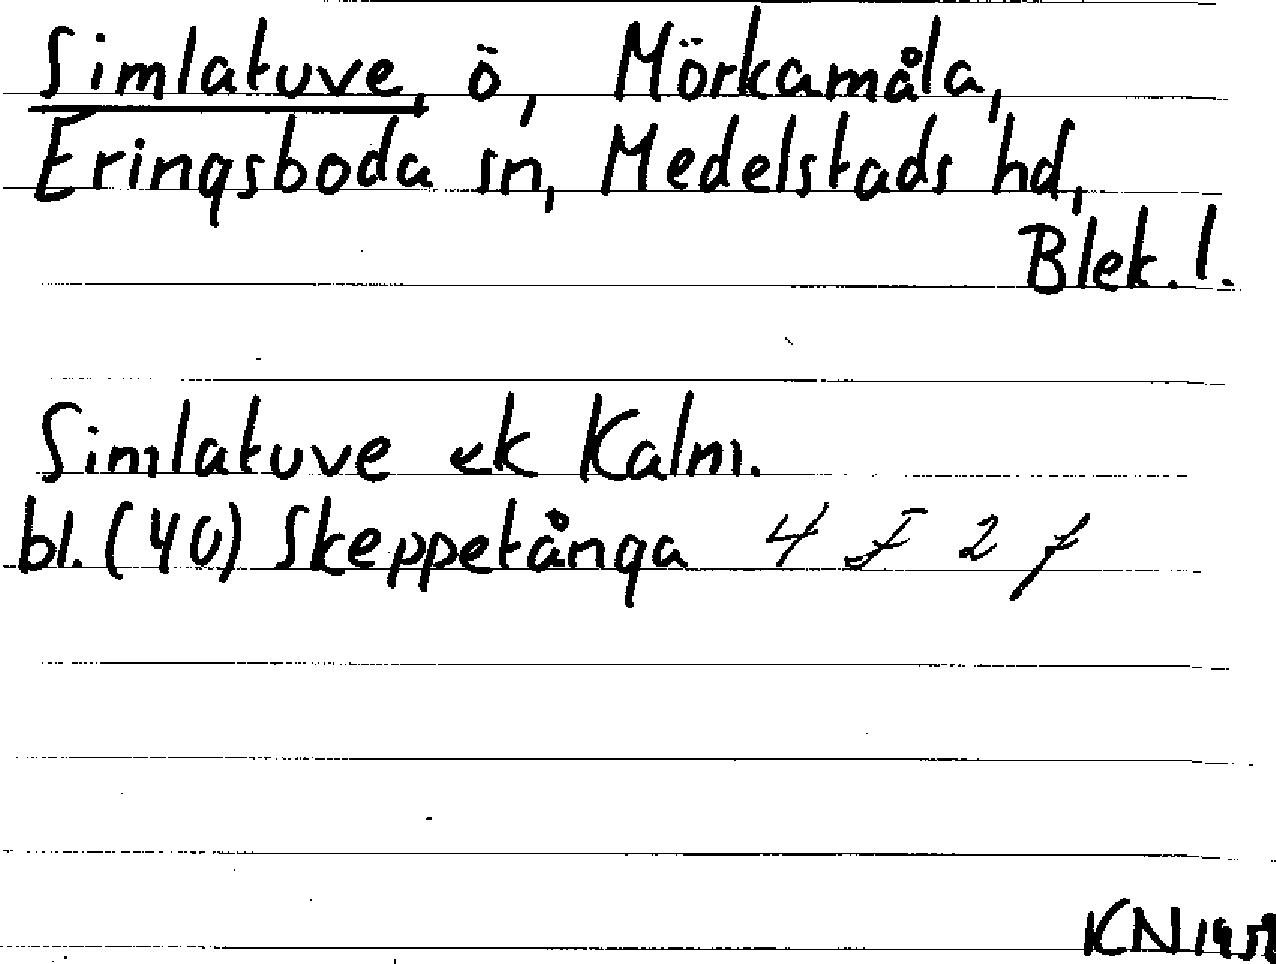 Simlatuve, ö, Mörkamåla,
Eringsboda sn, Medelstads hd,
Blek. l.
Simlatuve ek Kalm.
bl. (40) Skeppetånga 4 F 2 f
KN